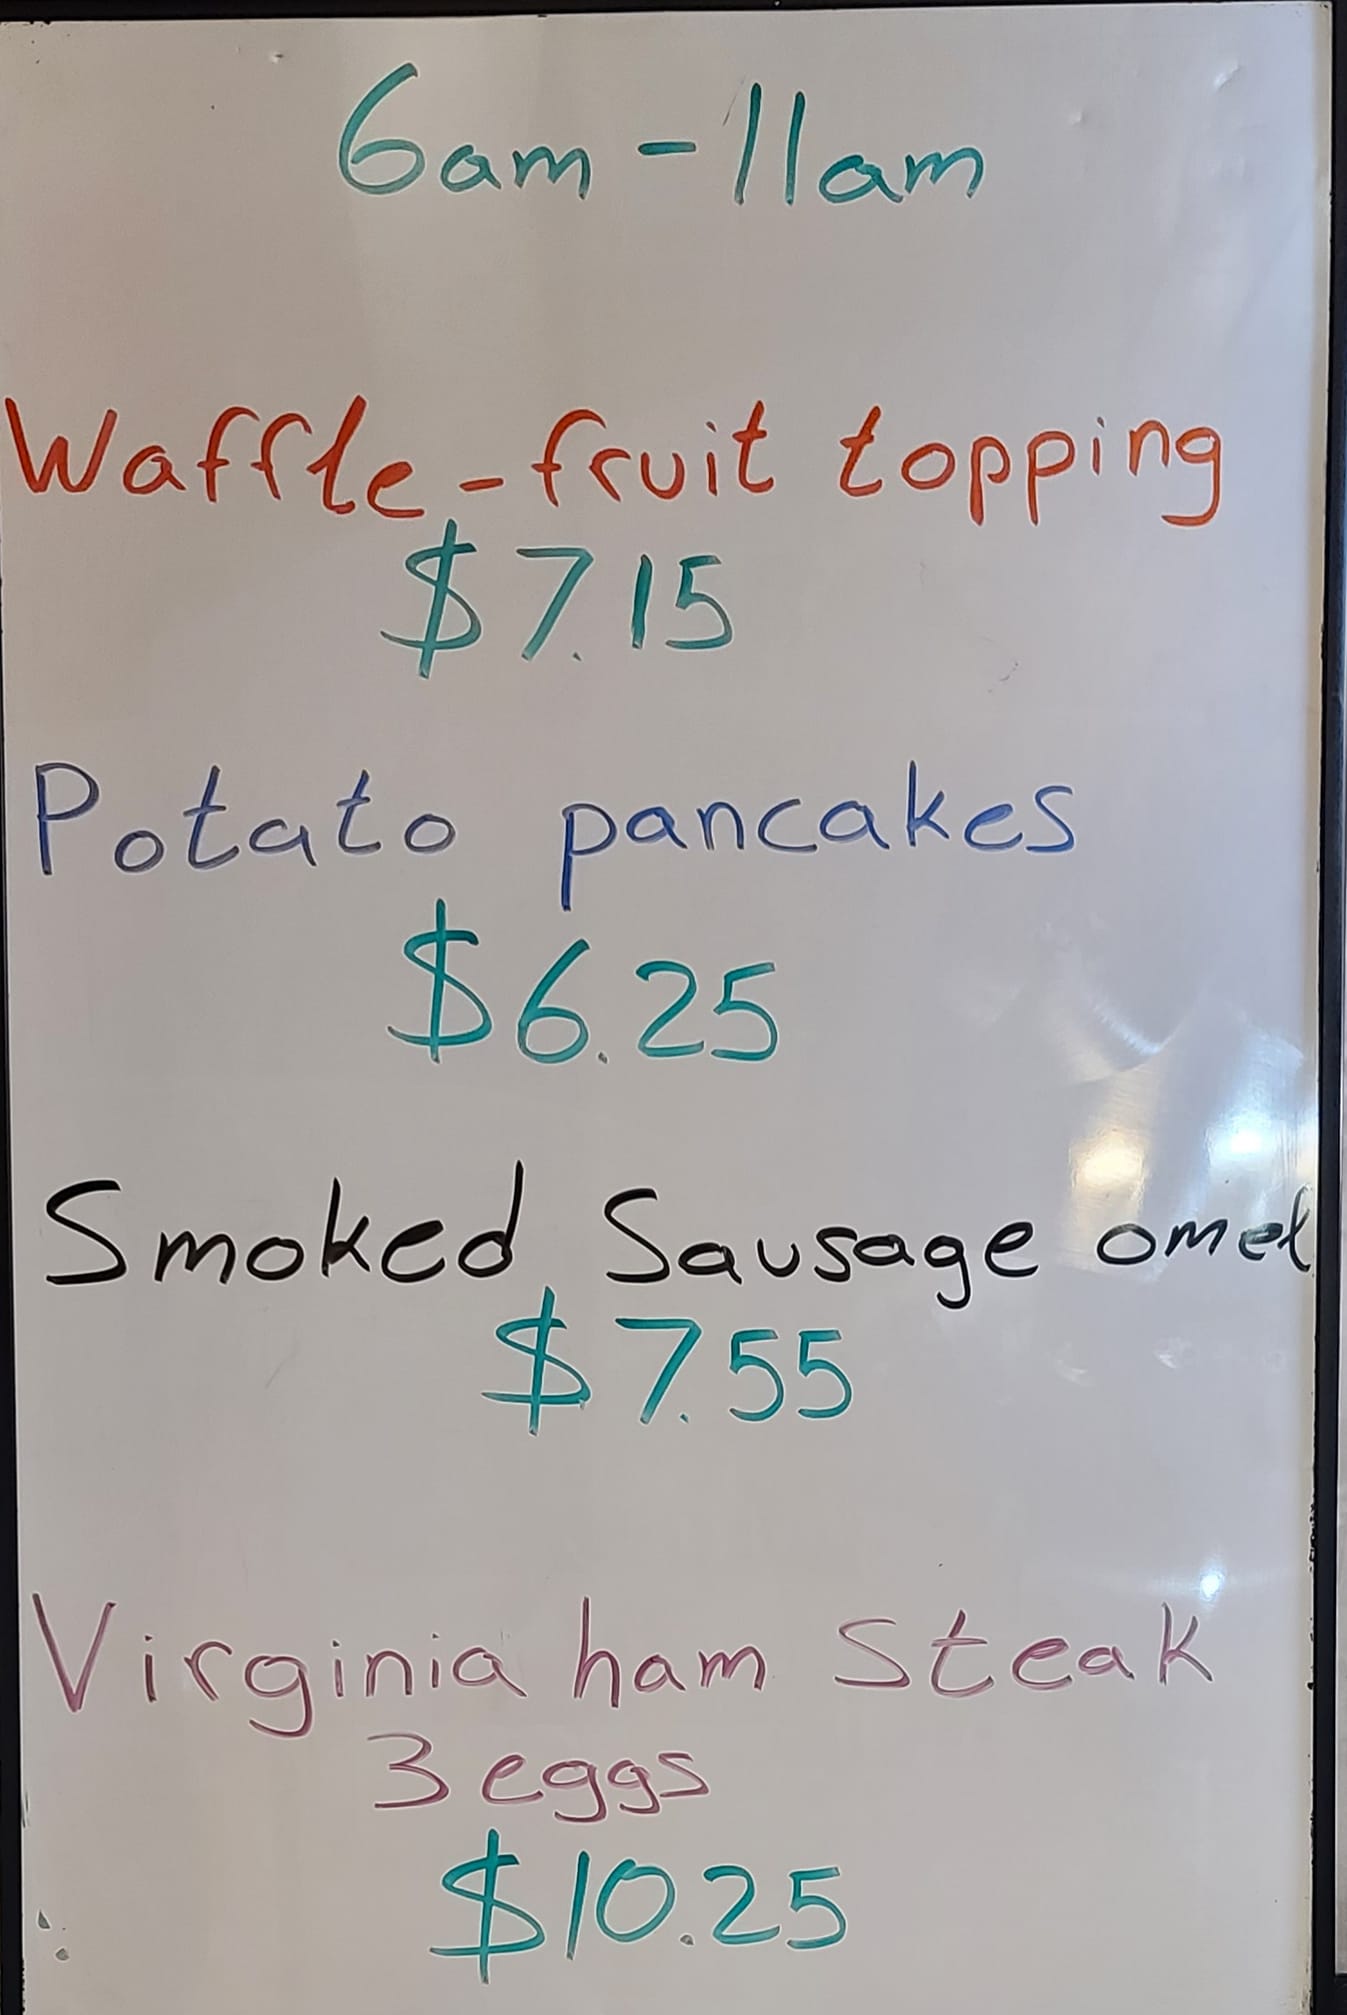 6am - 11am
Waffle - fruit topping
$7.15
Potato pancakes
$6.25
Smoked Sausage omel
$7.55
Virginia ham Steak
3 eggs
$10.25